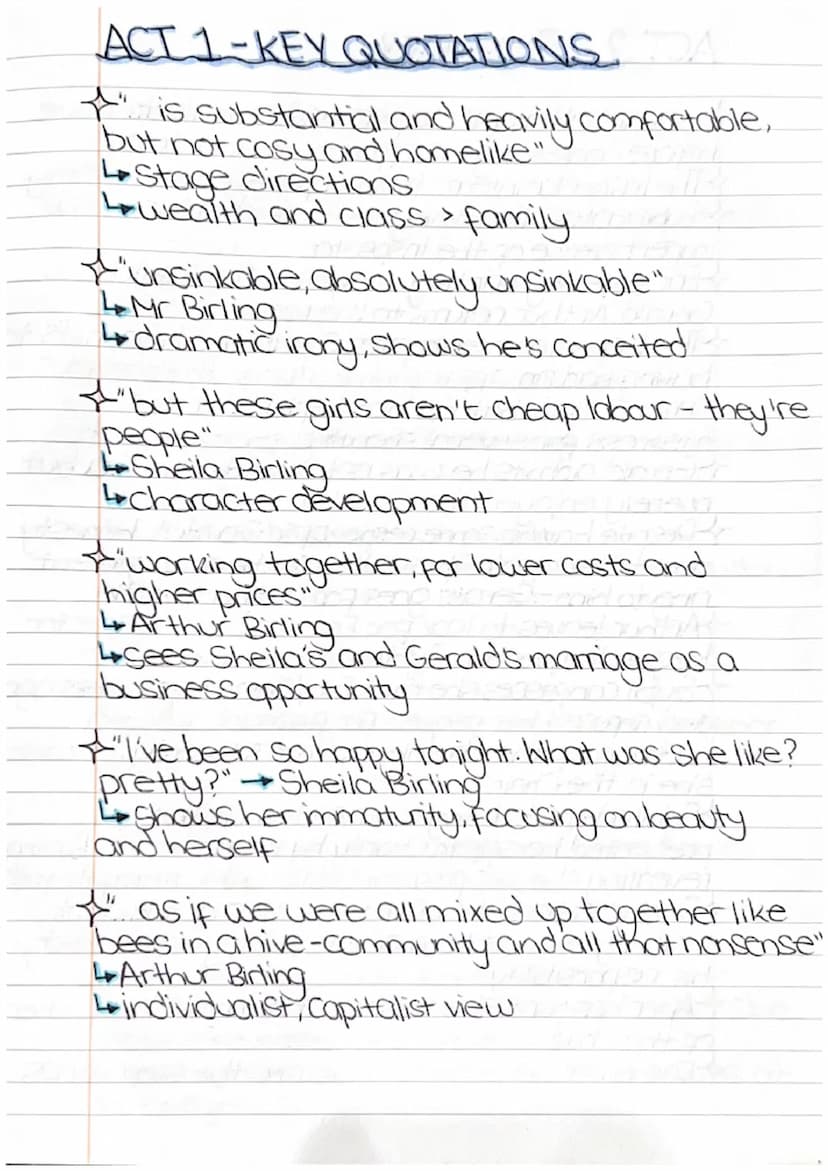 ACT 1-KEY QUOTATIONS
✧"... is substantial and heavily comfortable,
but not cosy and homelike"
↳Stage directions
↳wealth and class > family
✧"unsinkable, absolutely unsinkable"
↳Mr Birling
↳dramatic irony, shows he's conceited
✧"but these girls aren't cheap labour - they're
people"
↳Sheila Birling
↳character development
✧"working together, for lower costs and
higher prices"
↳Arthur Birling
↳Sees Sheila's and Gerald's marriage as a
business opportunity
✧"I've been so happy tonight. What was she like?
pretty?" → Sheila Birling
↳Shows her immaturity, focusing on beauty
and herself
✧"... as if we were all mixed up together like
bees in a hive-community and all that nonsense"
↳Arthur Birling
↳individualist, capitalist view